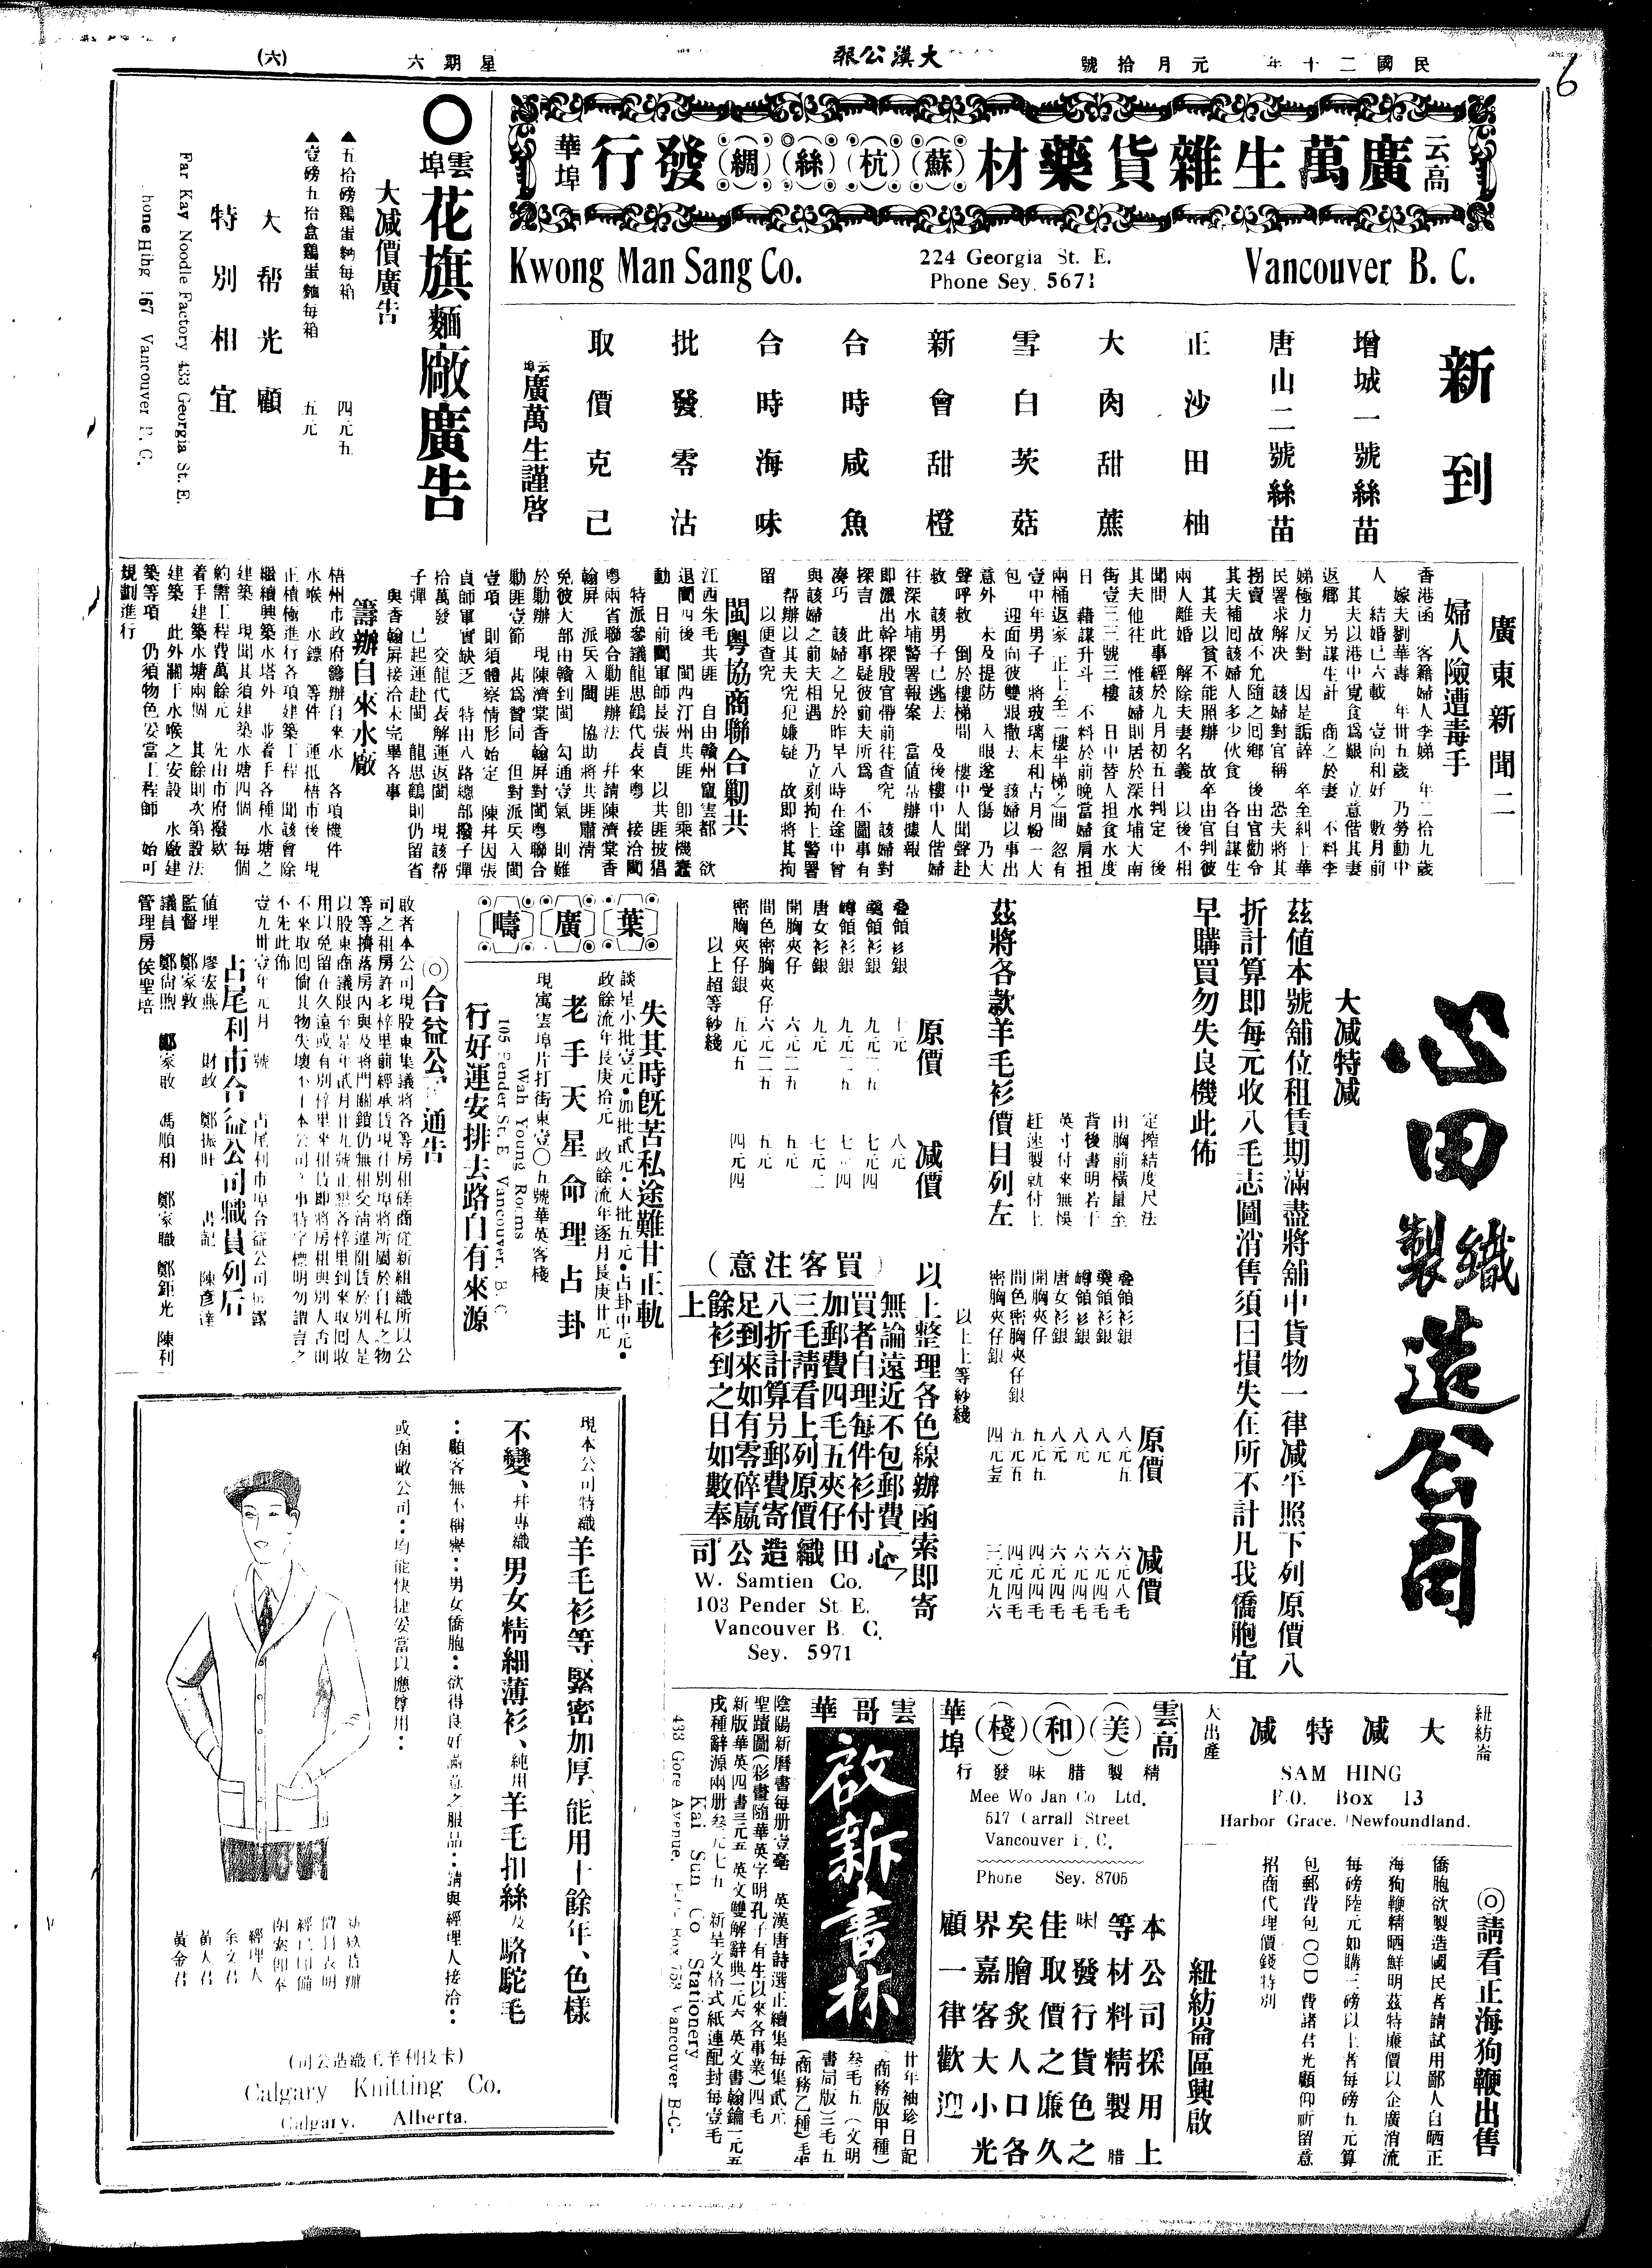 民國二十年 元月拾號
大漢公報
星期六
(六)
6
云高
廣萬生雜貨藥材(蘇)(杭)(絲)(綢)發行
華埠
Kwong Man Sang Co.
224 Georgia St. E.
Phone Sey. 5671
Vancouver B. C.
新到
增城一號絲苗
唐山二號絲苗
正沙田柚
大肉甜蔗
雪白茨菇
新會甜橙
合時咸魚
合時海味
批發零沽
取價克己
云埠廣萬生謹啓
〇雲埠花旗麵廠廣告
大减價廣告
▲五拾磅鷄蛋麵每箱 四元五
▲壹磅五拾盒鷄蛋麵每箱 五元
大帮光顧
特別相宜
Far Kay Noodle Factory 433 Georgia St. E.
hone Hihg 167 Vancouver B. C.
廣東新聞二
婦人險遭毒手
香港函 客籍婦人李娣 年二拾九歲
嫁夫劉華壽 年卅五歲 乃勞動中
人 結婚已六載 壹向和好 數月前
其夫以港中覓食爲艱 立意偕其妻
返鄉 另謀生計 商之於妻 不料李
娣極力反對 因是詬誶 卒至糾上華
民署求解决 該婦對官稱 恐夫將其
拐賣 故不允隨之囘鄉 後由官勸令
其夫補囘該婦人多少伙食 各自謀生
其夫以貧不能照辦 故卒由官判彼
兩人離婚 解除夫妻名義 以後不相
聞問 此事經於九月初五日判定 後
其夫他往 惟該婦則居於深水埔大南
街壹三三號三樓 日中替人担食水度
日 藉謀升斗 不料於前晚當婦肩担
兩桶返家 正上至二樓半梯之間 忽有
壹中年男子 將玻璃末和古月粉一大
包 迎面向彼雙眼撒去 該婦以事出
意外 未及提防 入眼遂受傷 乃大
聲呼救 倒於樓梯間 樓中人聞聲赴
救 該男子已逃去 及後樓中人偕婦
往深水埔警署報案 當值帮辦據報
即派出幹探殷官帶前往查究 該婦對
探言 此事疑彼前夫所爲 不圖事有
凑巧 該婦之兄於昨早八時在途中曾
與該婦之前夫相遇 乃立刻拘上警署
帮辦以其夫究犯嫌疑 故即將其拘
留 以便查究
閩粤協商聯合勦共
江西朱毛共匪 自由贛州竄雲都 欲
退閩四後 閩西汀州共匪 即乘機蠢
動 日前閩軍師長張貞 以共匪披猖
特派參議龍思鶴代表來粤 接洽閩
粤兩省聯合勦匪辦法 幷請陳濟棠香
翰屏 派兵入閩 協助將共匪肅清
免彼大部由贛到閩 勾通壹氣 則難
於勦辦 現陳濟棠香翰屏對閩粤聯合
勦匪壹節 甚爲贊同 但對派兵入閩
壹項 則須體察情形始定 陳幷因張
貞師軍實缺乏 特由八路總部撥子彈
拾萬發 交龍代表解運返閩 現該帮
子彈 已起運赴閩 龍思鶴則仍留省
與香翰屏接洽未完畢各事
籌辦自來水廠
梧州市政府籌辦自來水 各項機件
水喉 水鏢 等件 運抵梧市後 現
正積極進行各項建築工程 聞該會除
繼續興築水塔外 並着手各種水塘之
建築 現聞其須建築水塘四個 每個
約需工程費萬餘元 先由市府撥欵
着手建築水塘兩個 其餘則次第設法
建築 此外關于水喉之安設 水廠建
築等項 仍須物色妥當工程師 始可
規劃進行
心田織製造公司
大减特减
茲值本號舖位租賃期滿盡將舖中貨物一律减平照下列原價八
折計算即每元收八毛志圖消售須曰損失在所不計凡我僑胞宜
早購買勿失良機此佈
定擰結度尺法
由胸前橫量至
背後書明若干
英寸付來無悞
赶速製就付上
茲將各款羊毛衫價目列左
原價 减價
疊領衫銀 十元 八元
唐女衫銀 九元 七元二
開胸夾仔 六元二五 五元
間色密胸夾仔 六元二五 五元
密胸夾仔銀 五元五 四元四
以上超等紗綫
原價 减價
疊領衫銀 八元五 六元八毛
唐女衫銀 八元 六元四毛
開胸夾仔 五元五 四元四毛
間色密胸夾仔銀 五元五 四元四毛
以上上等紗綫
以上整理各色線辦函索即寄
(買客注意)
無論遠近不包郵費
買者自理每件衫付
加郵費四毛五夾仔
三毛請看上列原價
八折計算另郵費寄
足到來如有零碎嬴
餘衫到之日如數奉
上
心田織造公司
W. Samtien Co.
103 Pender St. E.
Vancouver B. C.
Sey. 5971
葉廣疇
失其時既苦私途難甘正軌
談星小批壹元•加批貳元•大批五元•占卦中元•
政餘流年長庚拾元 政餘流年逐月長庚廿元
老手天星命理占卦
現寓雲埠片打街東壹〇五號華英客棧
Wah Young Rooms
105 Pender St. E. Vancouver, B. C.
行好運安排去路自有來源
◎合益公司通告
啟者本公司現股東集議將各等房租磋商從新組織所以公
司之租房許多梓里前經承賃現往別埠將所屬於自私之物
等等擠落房內與及將門關鎖仍無租交淸遑阻賃於別人是
以股東商議限至是年貳月廿九號止懇各梓里到來取囘收
用以免留在久遠或有別梓里來租賃即將房租與別人否則
不來取囘倘其物失壞不干本公司之事特字標明勿謂言之
不先此佈
壹九卅壹年元月 號 占尾利市埠合益公司披露
占尾利市合益公司職員列后
値理 廖宏燕 財政 鄭振旺 書記 陳彥達
監督 鄭家敦
議員 鄭尙煦 鄭家敢 馮順和 鄭家職 鄭鉅光 陳利
管理房 侯聖培
現本公司特織羊毛衫等、緊密加厚、能用十餘年、色樣
不變、幷專織男女精細薄衫、純用羊毛扣絲及駱駝毛
:顧客無不稱譽:男女僑胞:欲得良好滿意之服品:請與經理人接洽:
或函敝公司:均能快捷妥當以應尊用:
價目表明
經已印備
函索即奉
經理人
余文君
黃人君
黃金君
(卡技利羊毛織造公司)
Calgary Knitting Co.
Calgary, Alberta.
雲哥華
啟新書林
廿年袖珍日記
(商務版甲種)
叁毛五(文明
書局版)三毛五
(商務乙種)毛半
陰陽新曆書每册壹毫 英漢唐詩選正續集每集貳元
聖蹟圖(彩畫隨華英字明孔子有生以來各事業)四毛
新版華英四書三元五 英文雙解辭典一元六 英文書翰鑰一元五
戌種辭源兩册叁元七五 新呈文格式紙連配封每壹毛
Kai Sun Co Stationery
433 Gore Avenue, P.O. Box 753 Vancouver B-C-
雲高
(美)(和)(棧)
華埠
精製腊味發行
Mee Wo Jan Co Ltd.
517 Carrall Street
Vancouver B. C.
Phone Sey. 8705
本公司採用上
等材料精製腊
味發行貨色之
佳取價之廉久
矣膾炙人口各
界嘉客大小光
顧一律歡迎
紐芳崙
大减特减
大出產
SAM HING
P.O. Box 13
Harbor Grace, Newfoundland.
◎請看正海狗鞭出售
僑胞欲製造國民者請試用鄙人自晒正
海狗鞭精晒鮮明茲特廉價以企廣消流
每磅陸元如購二磅以上者每磅五元算
包郵費包COD費諸君光顧仰祈留意
招商代理價錢特別
紐芳崙區興啟